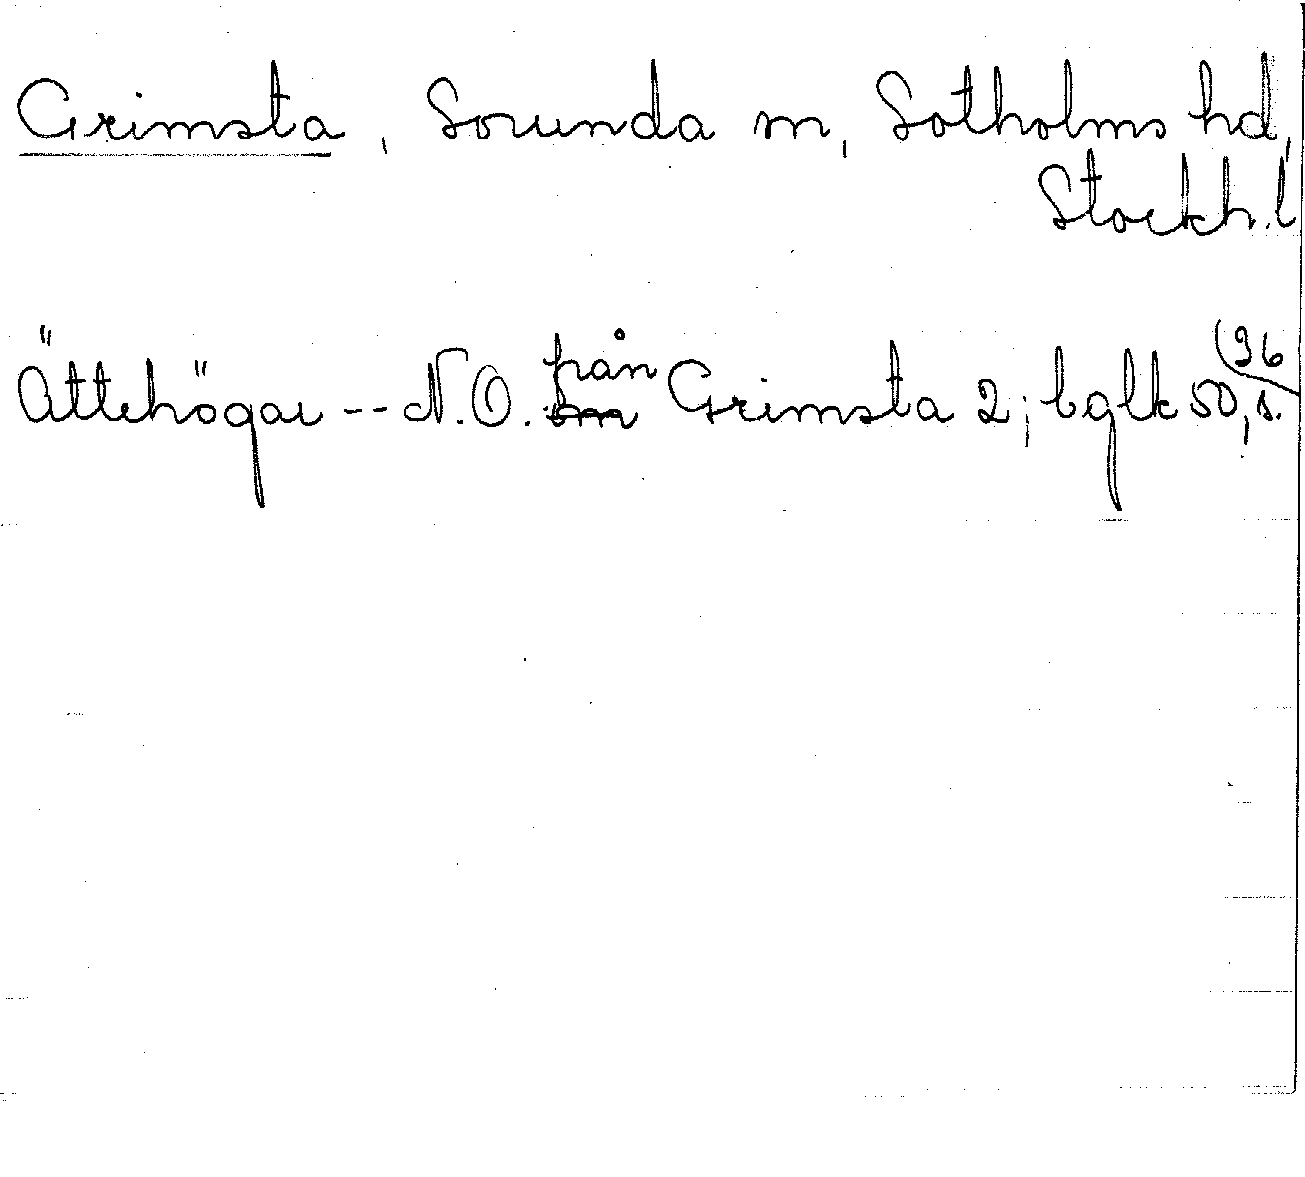 Grimsta, Sorunda sn, Sotholms hd,
Stockh.l
Ättehögar -- N.O. från Grimsta 2; bglk 50, s.
96